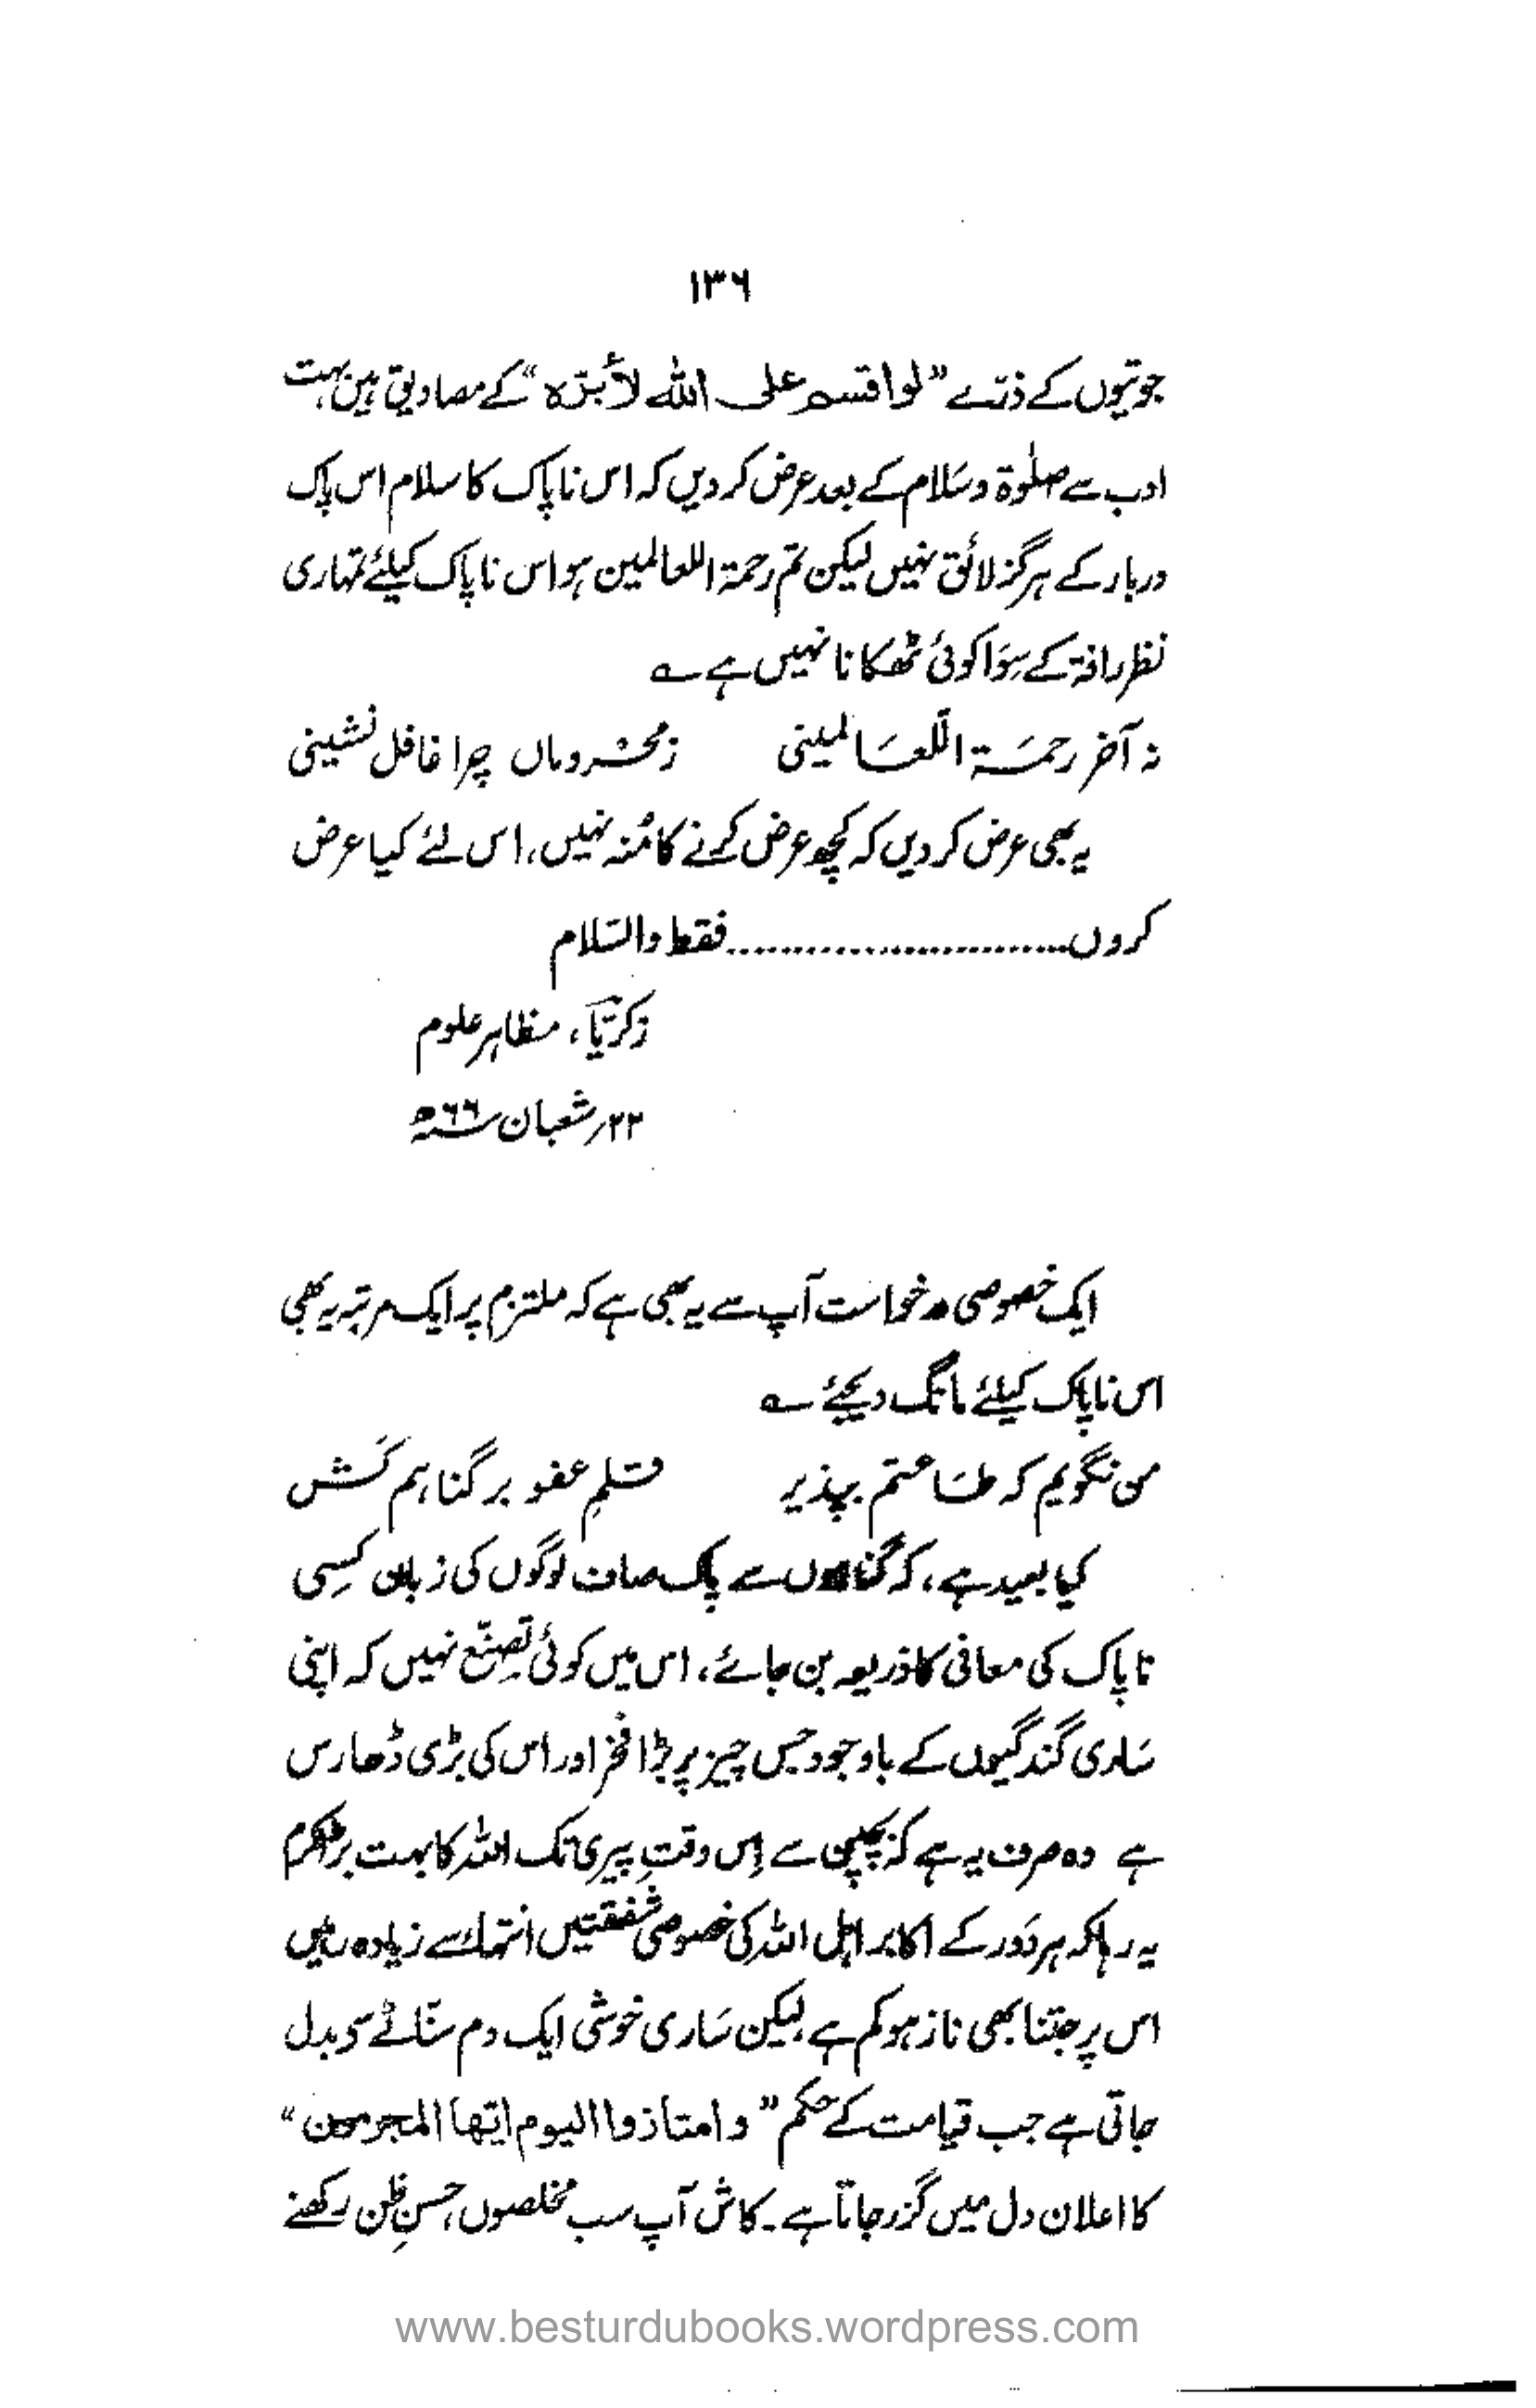 ۱۳۶
جوتیوں کے ذرّے ”لو اقسم علی اللہ لأبرّہ“ کے مصادیق ہیں بہت
ادب سے صلوٰۃ و سَلام کے بعد عرض کر دیں کہ اس ناپاک کا سلام اس پاک
دربار کے ہرگز لائق نہیں لیکن تم رحمۃ اللعالمین ہو اس ناپاک کیلئے تمہاری
نظر رافۃ کے سِوَا کوئی ٹھکانا نہیں ہے ؎
نہ آخر رحمَۃ اللّعَالمینی زمحشر وماں چرا غافل نشینی
یہ بھی عرض کر دیں کہ کچھ عرض کرنے کا مُنہ نہیں، اس لئے کیا عرض
کروں..........................فقط والسّلام
زکریّا، مظاہر علوم
۲۲؍ شعبان ۶۶ھ
ایک خصوصی درخواست آپ سے یہ بھی ہے کہ ملتزم پر ایک مرتبہ یہ بھی
اس ناپاک کیلئے مانگ دیجئے ؎
من نگویم کہ طَاعتم بپذیر قلمِ عفو بر گناہم کَش
کیا بعید ہے، کہ گناہوں سے پاک صاف لوگوں کی زبان کِسِی
ناپاک کی معافی کا ذریعہ بن جائے، اس میں کوئی تصنّع نہیں کہ اپنی
سَاری گندگیوں کے باوجود جس چیز پر بڑا فخر اور اس کی بڑی ڈھارس
ہے وہ صرف یہ ہے کہ بچپن سے اِس وقتِ پیری تک اللہ کا بہت بڑا کرم
یہ رہا کہ ہر دَور کے اکابر اہل اللہ کی خصوصی شفقتیں انتہا سے زیادہ رہیں
اس پر جتنا بھی ناز ہو کم ہے لیکن سَاری خوشی ایک دم سنّاٹے سی بدل
جاتی ہے جب قیامت کے حکم ”وامتازوا الیوم ایّھا المجرمون“
کا اعلان دل میں گزر جاتا ہے۔ کاش آپ سب مخلصوں، حسنِ ظن رکھنے
www.besturdubooks.wordpress.com